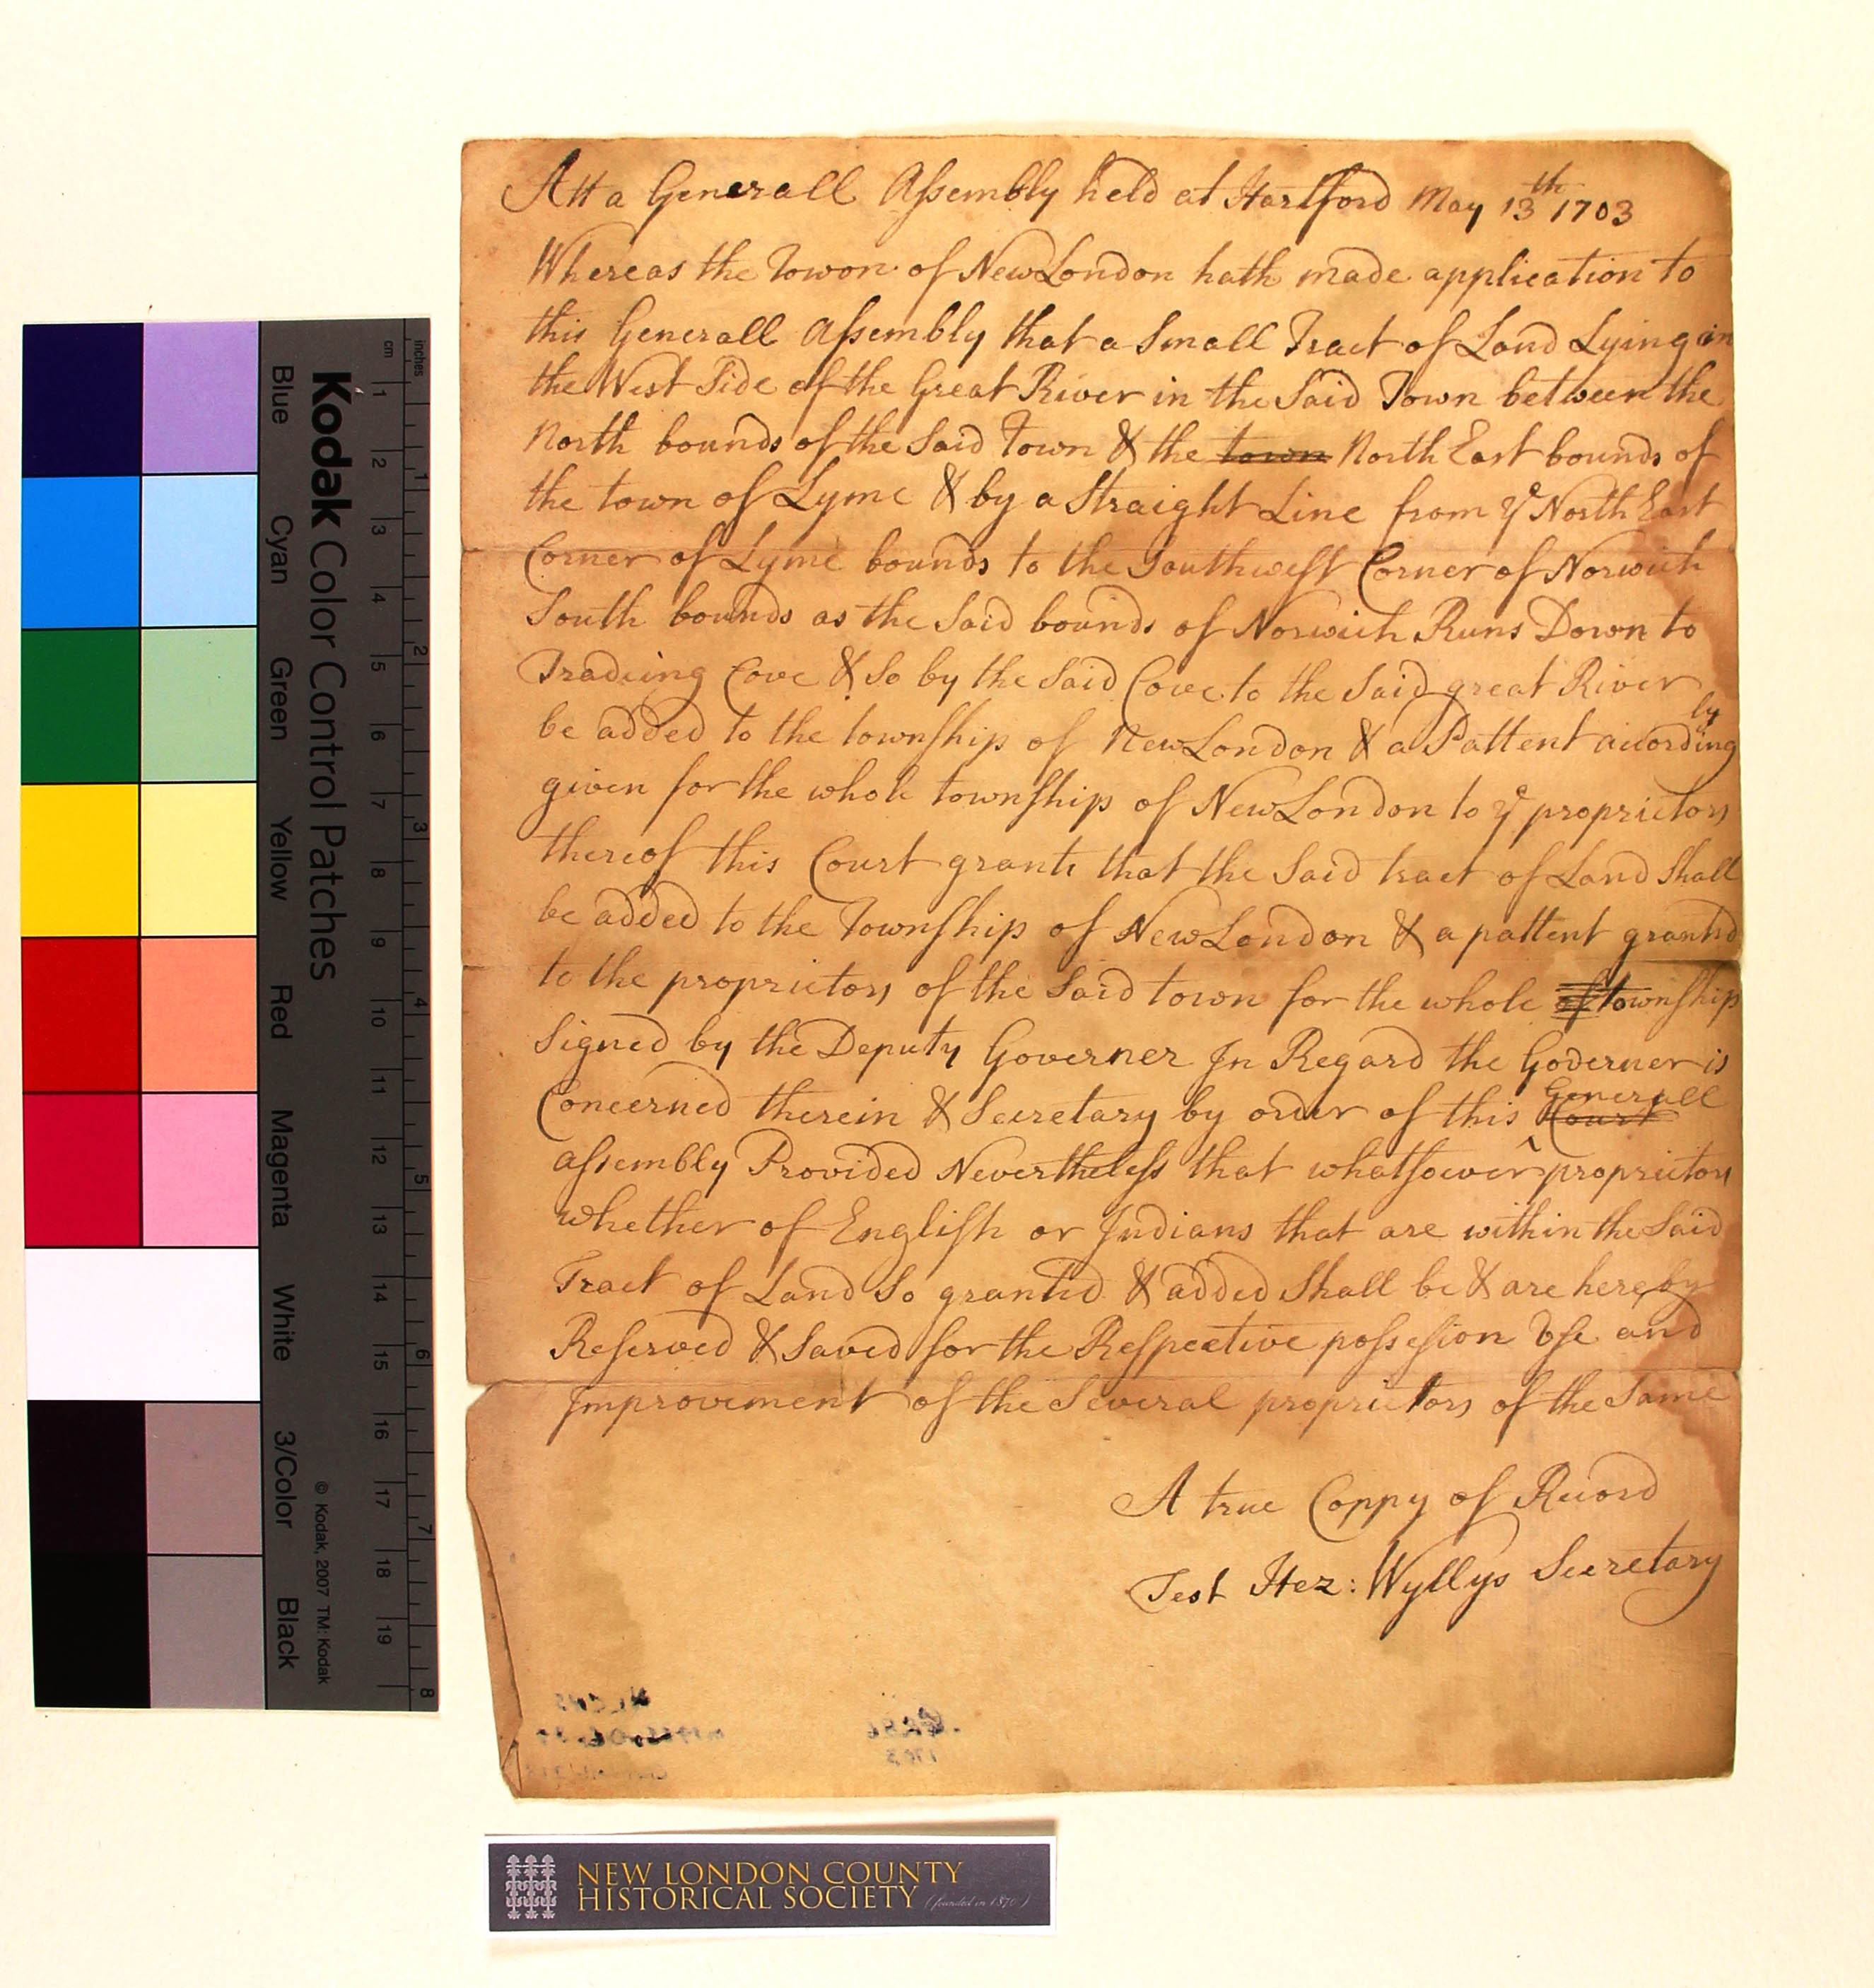 Att a Generall Assembly held at Hartford May 13th 1703
Whereas the Towon of New London hath made application to
this Generall Assembly that a Small Tract of Land Lying on
the West Side of the Great River in the Said Town between the
North bounds of the Said Town & the town North East bounds of
the town of Lyme & by a Straight Line from ye North East
Corner of Lyme bounds to the Southwest Corner of Norwich
South bounds as the Said bounds of Norwich Runs Down to
Tradeing Cove & So by the Said Cove to the Said great River
be added to the township of New London & a Pattent accordingly
given for the whole township of New London to ye proprietors
thereof this Court grants that the Said tract of Land Shall
be added to the Township of New London & a pattent granted
to the proprietors of the Said town for the whole of township
Signed by the Deputy Governer In Regard the Governer is
Concerned therein & Secretary by order of this Court Generall
assembly Provided Nevertheless that whatsoever proprietors
whether of English or Indians that are within the Said
Tract of Land So granted & added Shall be & are hereby
Reserved & Saved for the Respective possession Use and
Improvement of the Several proprietors of the Same
A true Coppy of Record
Test Hez: Wyllys Secretary
NEW LONDON COUNTY
HISTORICAL SOCIETY (founded in 1870)
Kodak Color Control Patches
© Kodak, 2007 TM: Kodak
Blue Cyan Green Yellow Red Magenta White 3/Color Black
cm 1 2 3 4 5 6 7 8 9 10 11 12 13 14 15 16 17 18 19
inches 1 2 3 4 5 6 7 8